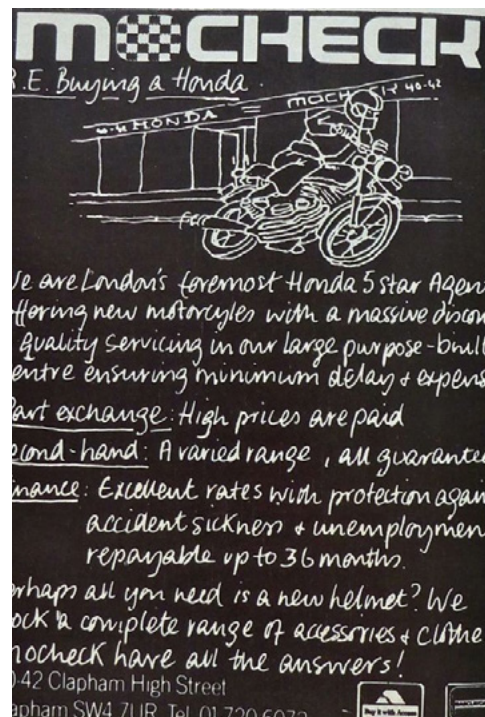 MOCHECK
R.E. Buying a Honda
HONDA = MOCHECK 40-42
We are London's foremost Honda 5 star Agen
ffering new motorcyles with a massive discou
quality servicing in our large purpose-built
entre ensuring minimum delay & expens
Part exchange: High prices are paid
econd-hand: A varied range, all guarantee
inance: Excellent rates with protection again
accident sickness & unemploymen
repayable up to 36 months.
erhaps all you need is a new helmet? We
ock a complete range of accessories & clothe
mocheck have all the answers!
0-42 Clapham High Street
lapham SW4 7UR Tel 01 720 6072
Buy it with Access